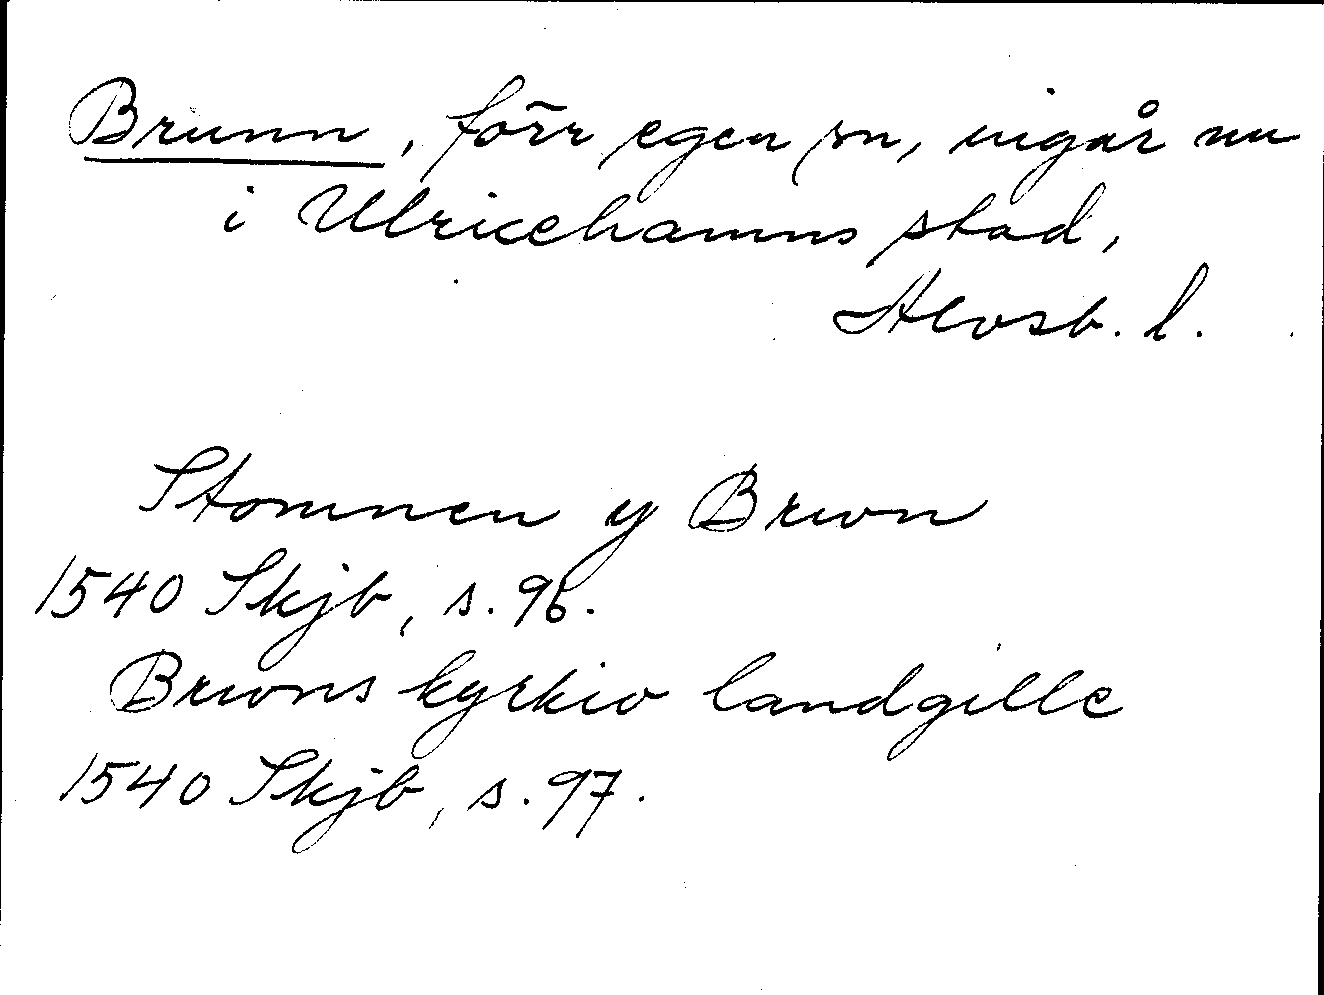 Brunn, förr egen sn, ingår nu
i Ulricehamns stad,
Älvsb. l.
Stommen y Brwn
1540 Skjb, s. 96.
Brwns kyrkio landgille
1540 Skjb, s. 97.